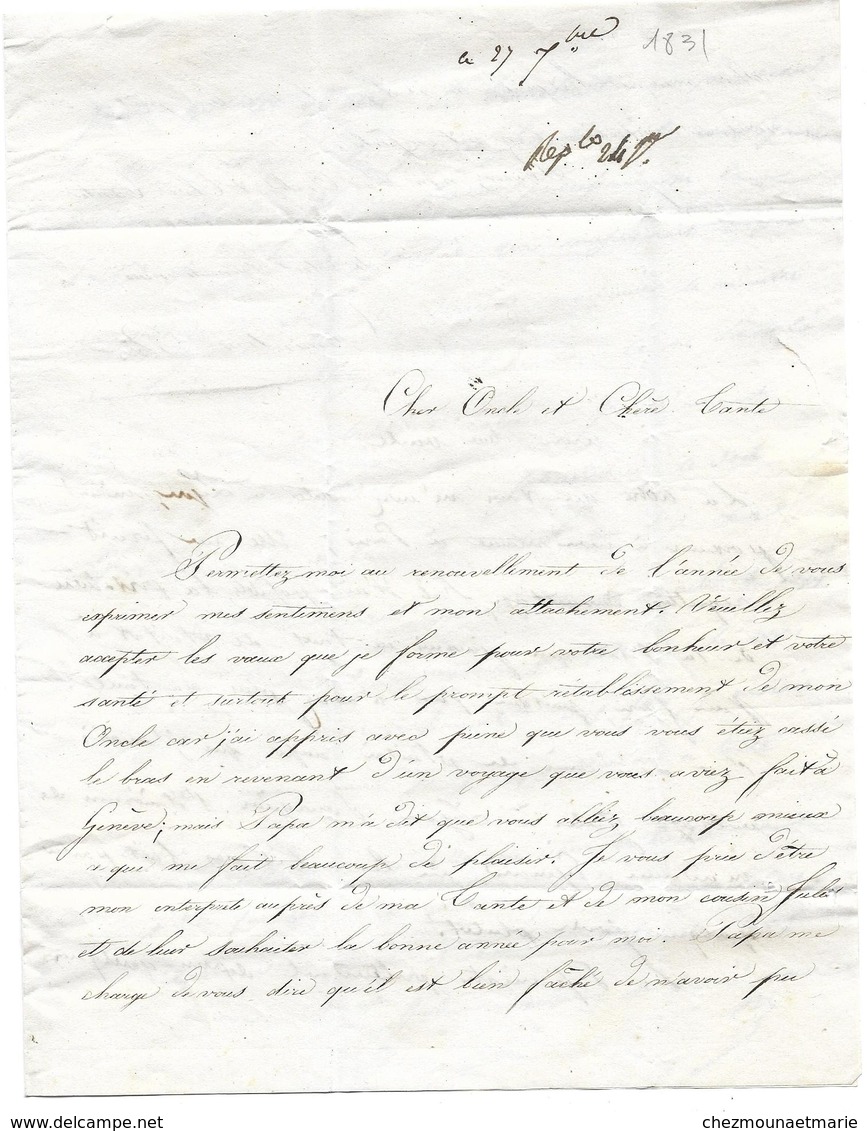 ce 27 
1831
Cher Oncle et Chère Tante
Permettez moi au renouvellement de l'année de vous
exprimer mes sentimens et mon attachement. Veuillez
accepter les vœux que je forme pour votre bonheur et votre
santé et surtout pour le prompt rétablissement de mon
Oncle car j'ai appris avec peine que vous vous étiez cassé
le bras en revenant d'un voyage que vous aviez fait à
Genève; mais Papa m'a dit que vous alliez beaucoup mieux
ce qui me fait beaucoup de plaisir. Je vous prie d'être
mon interprete auprès de ma Tante et de mon cousin Jules
et de leur souhaiter la bonne année pour moi. Papa me
charge de vous dire qu'il est bien fâché de n'avoir pu
delcampe.net
chezmounaetmarie